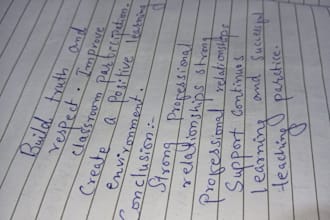 Build truth and
respect. Improve
classroom participation.
Create a positive learning
environment.
Conclusion:-
Strong Professional
relationships strong
Professional relationships
Support continuos
learning and successful
teaching practice.